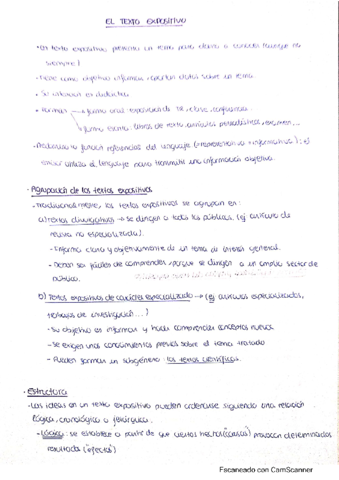 EL TEXTO EXPOSITIVO
• Los texto expositivo presenta un tema para darlo a conocer (aunque no
siempre)
• Tiene como objetivo informar y aportar datos sobre un tema.
• Su intención es didáctica
• Formas → forma oral: exposición de clase, conferencia
→ forma escrita: libros de texto, artículos periodísticos, examen...
• Predomina la función referencial del lenguaje (representativa o informativa): el
emisor utiliza el lenguaje para transmitir una información objetiva.
• Agrupación de los textos expositivos
- Tradicionalmente, los textos expositivos se agrupan en:
a) Textos divulgativos → Se dirigen a todos los públicos (ej artículo de
revista no especializada).
- Informa clara y objetivamente de un tema de interés general.
- Deben ser fáciles de comprender, porque se dirigen a un amplio sector de
público.
b) Textos expositivos de carácter especializado → (ej artículos especializados,
trabajos de investigación...)
- Su objetivo es informar y hacer comprender conceptos nuevos
- Se exigen unos conocimientos previos sobre el tema tratado
- Pueden formar un subgénero: los textos científicos.
• Estructura
- Las ideas en un texto expositivo pueden ordenarse siguiendo una relación
lógica, cronológica o jerárquica.
- Lógica: se establece a partir de que ciertos hechos (causa) provocan determinados
resultados (efectos)
Escaneado con CamScanner